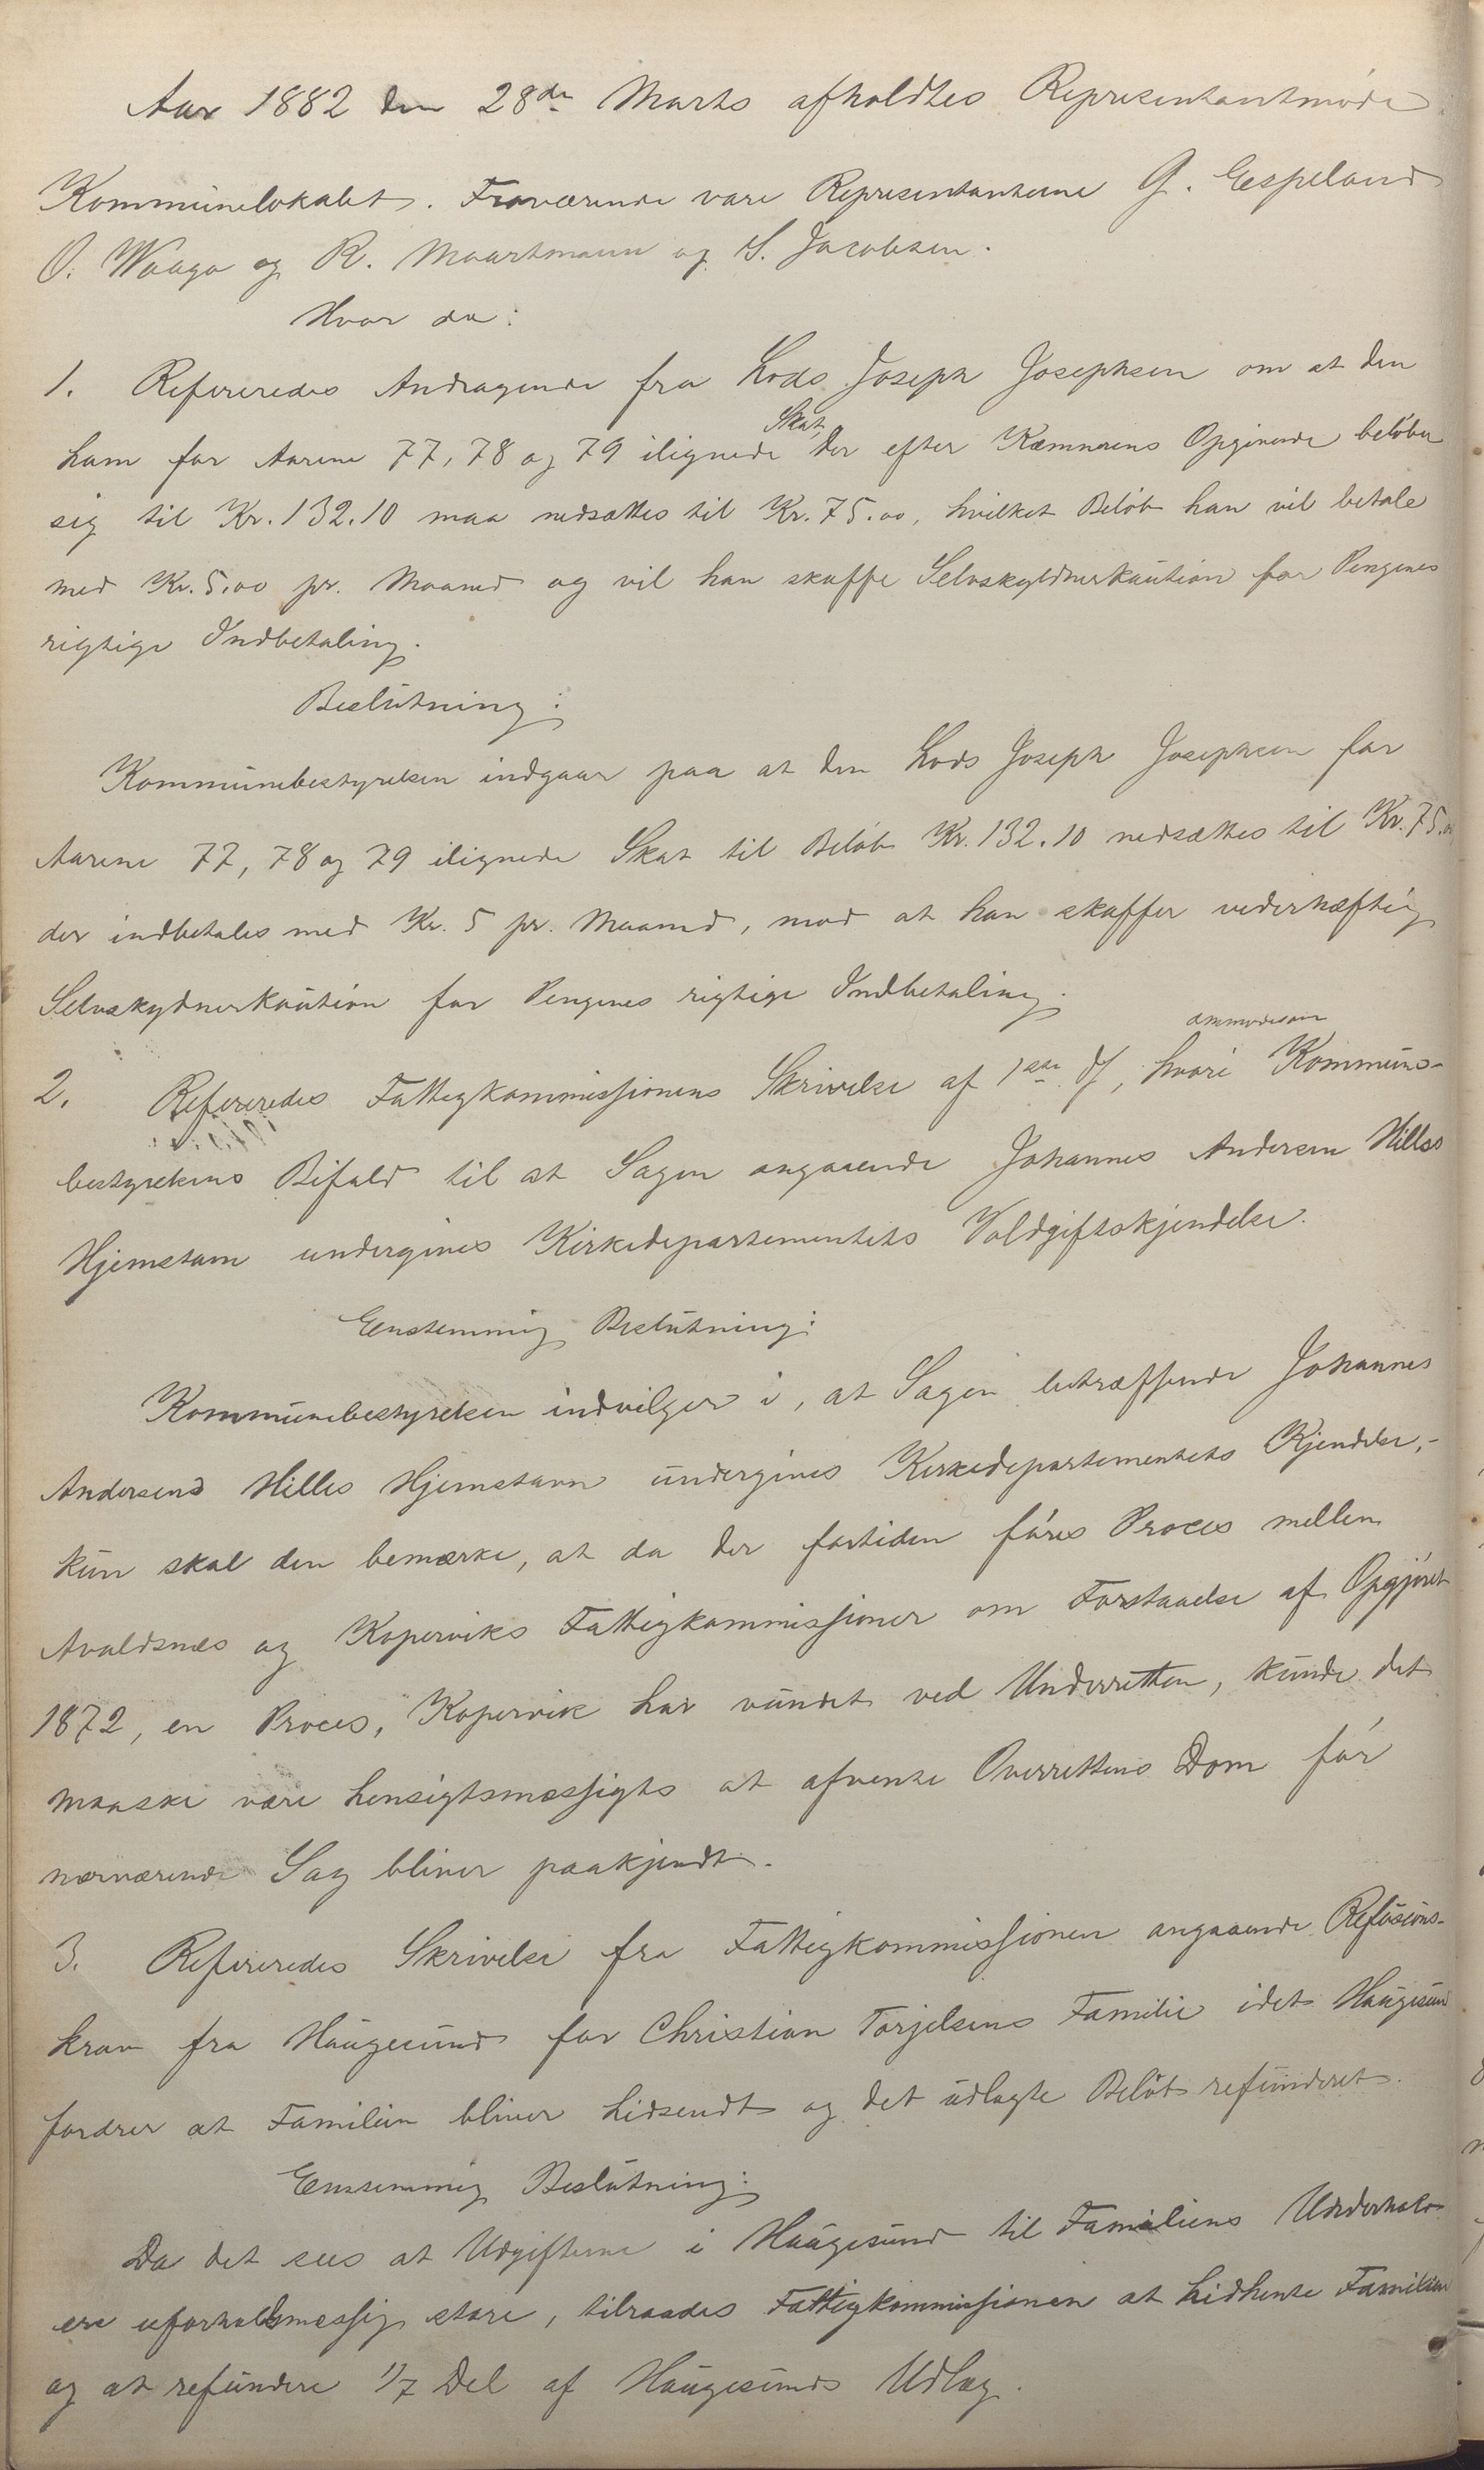 Aar 1882 den 28de Marts afholdtes Representantmöde
Kommünelokalet. Fraværende vare Representanterne G. Eespeland
O. Waage og R. Maartmann og S. Jacobsen.
Hvor da:
1. Refereredes Andragende fra Lods Joseph Josephsen om at den
Skat,
ham for Aarene 77, 78 og 79 ilignede der efter Kæmnerens Opgivende belöber
sig til Kr. 132.10 maa nedsættes til Kr. 75.00, hvilket Belöb han vil betale
med Kr. 5.00 pr. Maaned og vil han skaffe Selvskyldnerkaütion for Pengenes
rigtige Indbetaling.
Beslütning:
Kommünebestyrelsen indgaar paa at den Lods Joseph Josephsen for
Aarene 77, 78 og 79 ilignede Skat til Belöb Kr. 132.10 nedsættes til Kr. 75.00
der indbetales med Kr. 5 pr. Maaned, mod at han skaffer vederhæftig
Selvskydnerkaütion for Pengenes rigtige Indbetaling.
ommodesom
2. Refereredes Fattigkommissionens Skrivelse af 1ste ds, hvori Kommüne-
bestyrelsens Bifald til at Sagen angaaende Johannes Andersen Hilles
Hjemstavn undergives Kirkedepartementets Voldgiftskjendelse.
Eenstemmig Beslütning:
Kommünebestyrelsen indvilger i, at Sagen betræffende Johannes
Andersens Hilles Hjemstavn ündergives Kirkedepartementets Kjendelse,-
kün skal den bemærke, at da der fortiden föres Proces mellem
Avaldsnes og Koperviks Fattigkommissioner om Forstaaelse af Opgjöret
1872, en Proces, Kopervik har vündet ved Underretten, künde det
maaske være hensigtsmæssigts at afvente Overrettens Dom för
nærværende Sag bliver paakjendt.
3. Refereredes Skrivelse fra Fattigkommissionen angaaende Refüsions-
krav fra Haügesünd for Christian Torjelsens Familie idet Haügesünd
fordrer at Familien bliver hidsendt og det üdlagte Belöb refünderet.
Eenstemmig Beslütning:
Da det sees at Udgifterne i Haügesünd til Familiens Underhold
ere uforholdsmæssig store, tilraades Fattigkommissionen at hidhente Familien
og at refündere 1/7 Del af Haügesünds Udlæg.